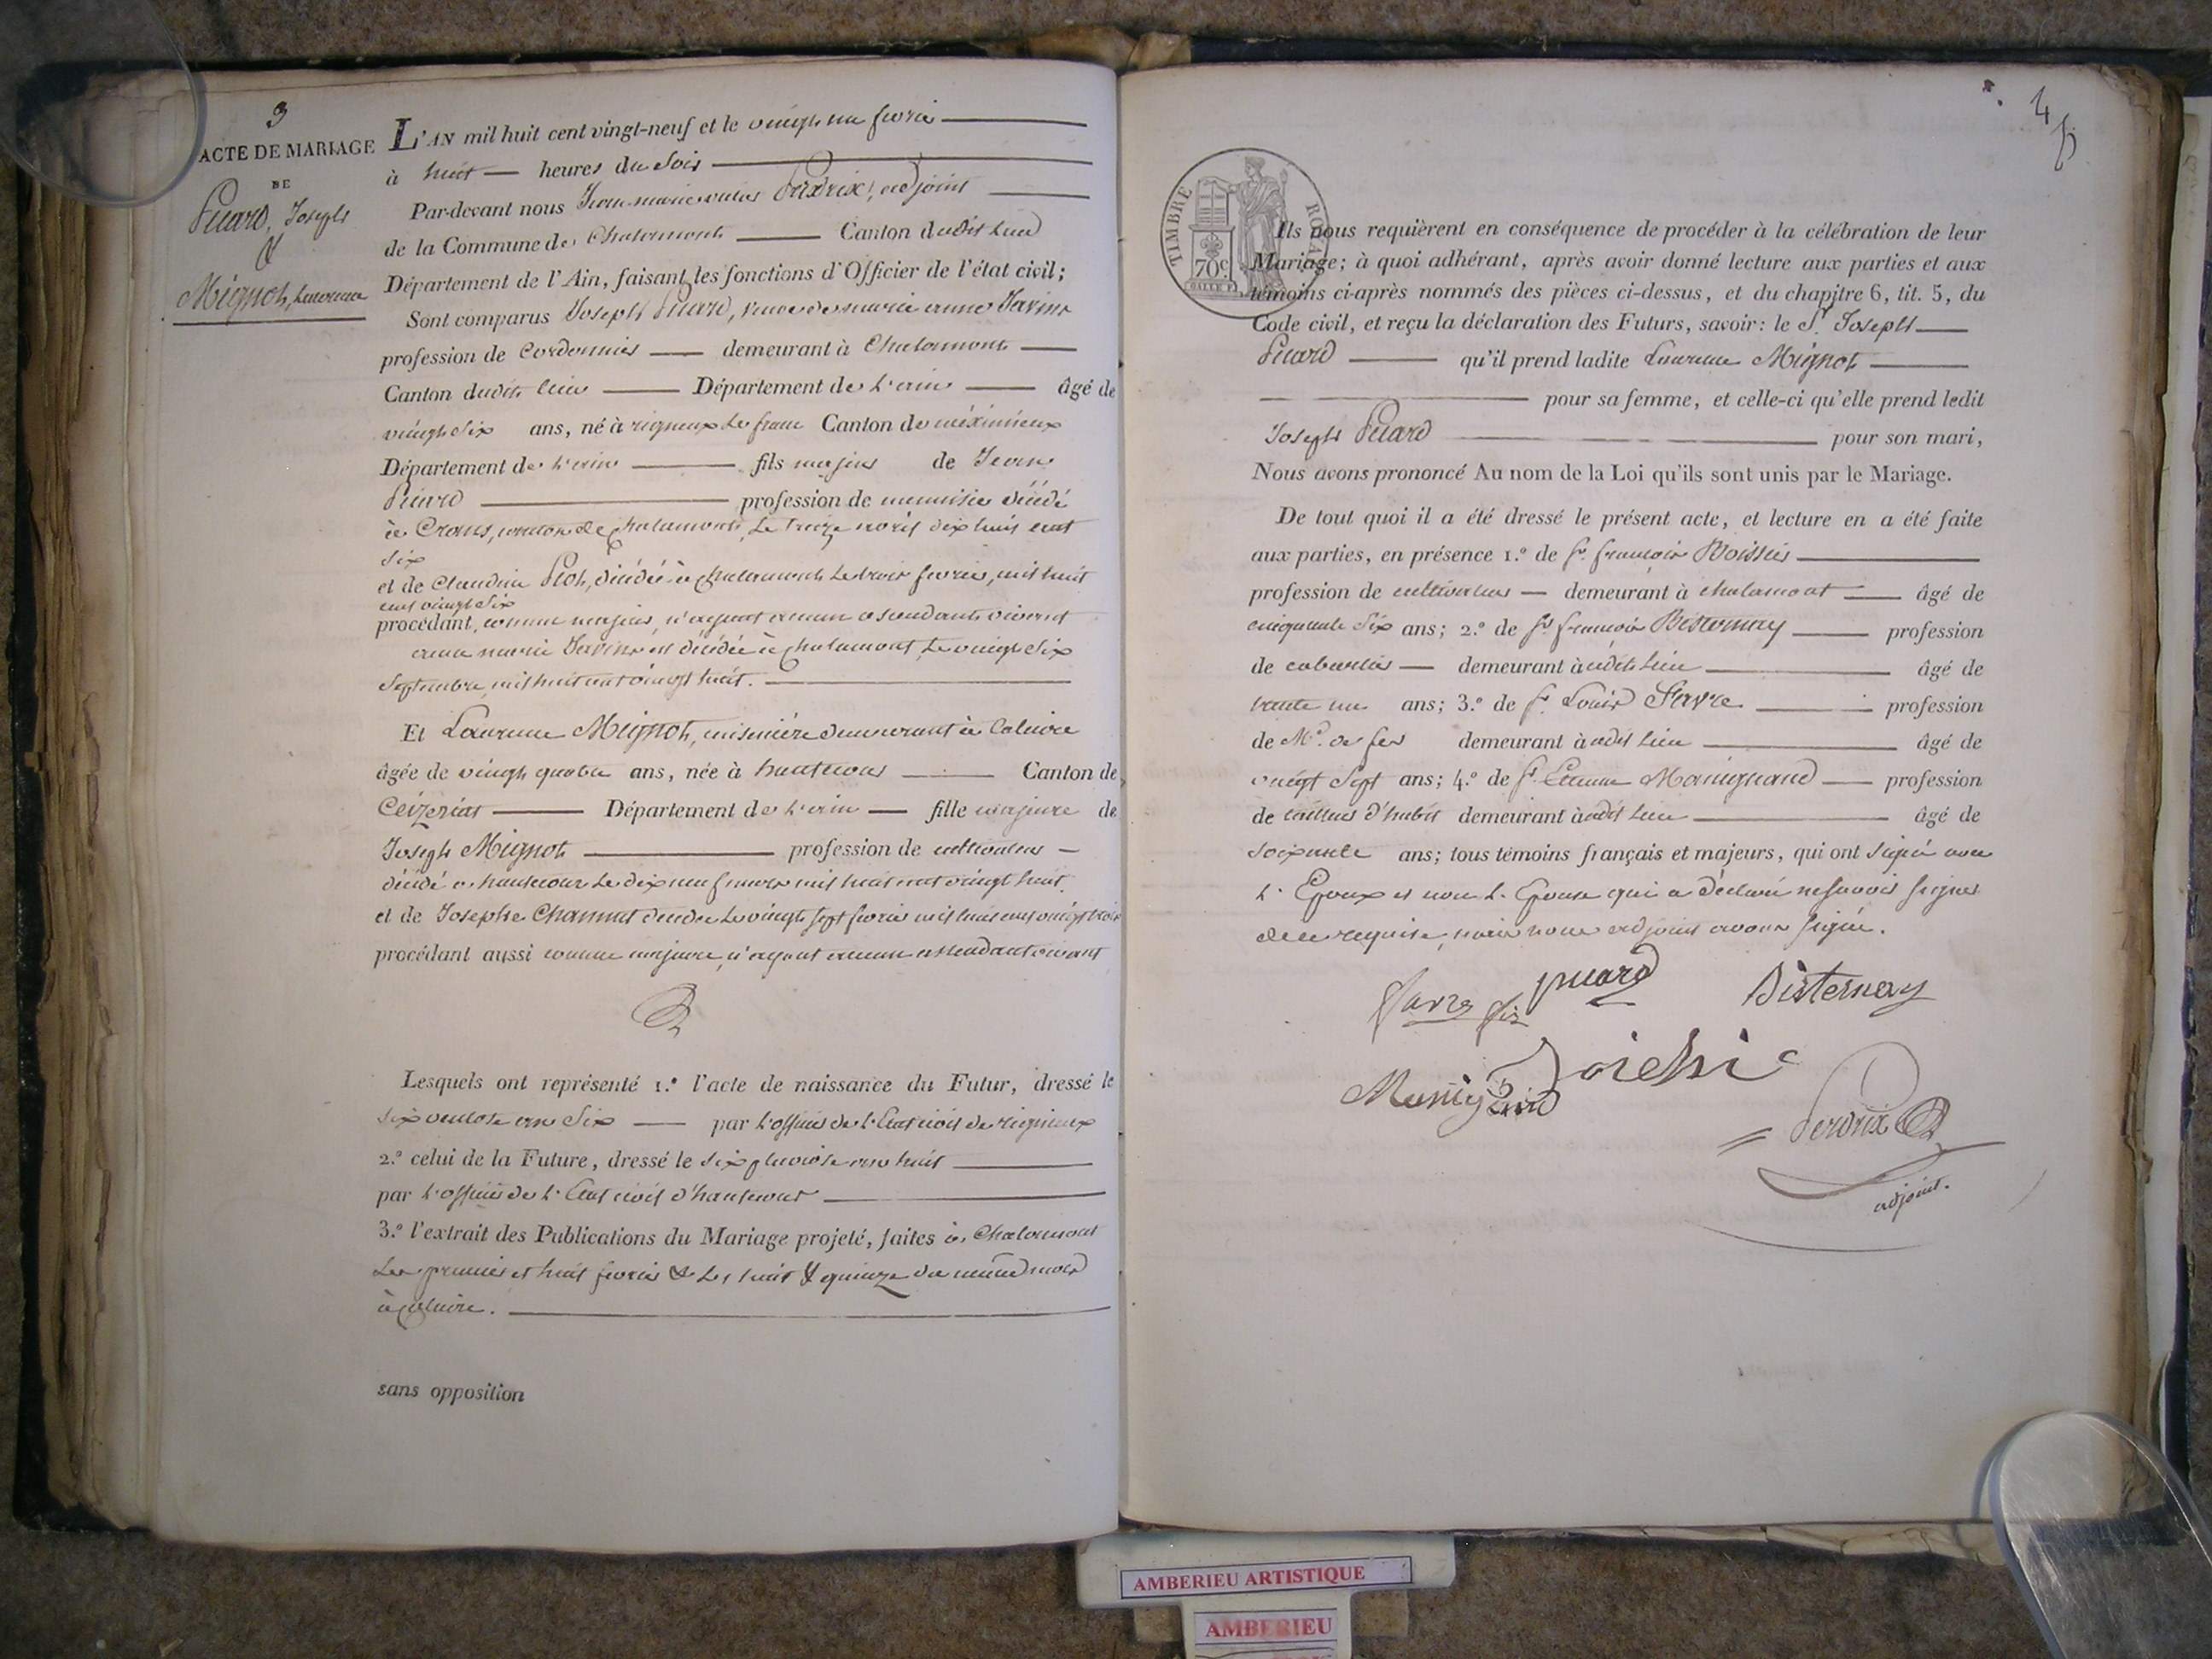 3
ACTE DE MARIAGE
DE
Picard, Joseph
&
Mignot, Laurence
L'AN mil huit cent vingt-neuf et le vingt un fevrier
à huit heures du Soir
Par-devant nous Jean marie Perdrix, adjoint
de la Commune de Chalamont Canton dudit Lieu
Département de l'Ain, faisant les fonctions d'Officier de l'état civil;
Sont comparus Joseph Picard, veuf de marie anne
profession de Cordonnier demeurant à Chalamont
Canton dudit lieu Département de L'ain âgé de
vingt Six ans, né à rigneux Le franc Canton de méximieux
Département de L'ain fils majeur de Jean
Picard profession de menuisier décédé
à Crans, canton de Chalamont, Le treize mil dix huit cent
Six
et de Claudine décédée à Chalamont Le trois fevrier, mil huit
cent vingt Six
procédant, comme majeur, n'ayant aucun ascendant vivant
anne marie est décédée à Chalamont, Le vingt Six
Septembre, mil huit cent vingt huit.
Et Laurence Mignot, cuisinière demeurant à Caluire
âgée de vingt quatre ans, née à hautecour Canton de
Ceizeriat Département de L'ain fille majeure de
Joseph Mignot profession de cultivateur
décédé à hautecour Le dix neuf mars mil huit cent vingt huit
et de Josephe décédée Le vingt Sept fevrier mil huit cent vingt trois
procédant aussi comme majeure, n'ayant aucun ascendant vivant
Lesquels ont représenté 1.º l'acte de naissance du Futur, dressé le
Six ventose an Six par L'officier de L'Etat civil de rigneux
2.º celui de la Future, dressé le Six pluviôse an huit
par L'officier de L'Etat civil d'hautecour
3.º l'extrait des Publications du Mariage projeté, faites à Chalamont
Les premier et huit fevrier & Les huit & quinze du même mois
à Caluire.
sans opposition
4
TIMBRE ROYAL
70c.
Ils nous requièrent en conséquence de procéder à la célébration de leur
Mariage; à quoi adhérant, après avoir donné lecture aux parties et aux
témoins ci-après nommés des pièces ci-dessus, et du chapitre 6, tit. 5, du
Code civil, et reçu la déclaration des Futurs, savoir: le Sr. Joseph
Picard qu'il prend ladite Laurence Mignot
pour sa femme, et celle-ci qu'elle prend ledit
Joseph Picard pour son mari,
Nous avons prononcé Au nom de la Loi qu'ils sont unis par le Mariage.
De tout quoi il a été dressé le présent acte, et lecture en a été faite
aux parties, en présence 1.º de Sr. françois Boissier
profession de cultivateur demeurant à chalamont âgé de
cinquante Six ans; 2.º de Sr. françois Bisternay profession
de cabaretier demeurant à udit Lieu âgé de
trente un ans; 3.º de Sr. Louis Favre profession
de Md. de fer demeurant à udit Lieu âgé de
vingt Sept ans; 4.º de Sr. Etienne Manignand profession
de tailleur d'habit demeurant à udit Lieu âgé de
Soixante ans; tous témoins français et majeurs, qui ont Signé avec
L'Epoux et non L'Epouse qui a déclaré ne Savoir Signer
de ce requise, mais nous adjoint avons Signé.
favre fils picard Bisternay
Manignand
Perdrix
adjoint.
AMBERIEU ARTISTIQUE
AMBERIEU